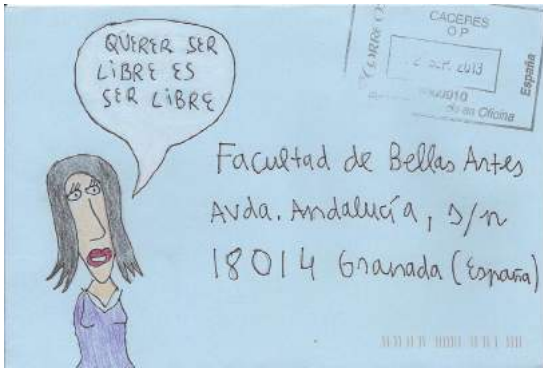 QUERER SER
LIBRE ES
SER LIBRE
CACERES
O P
SEP. 2013
España
Oficina
Facultad de Bellas Artes
Avda. Andalucía, s/n
18014 Granada (España)